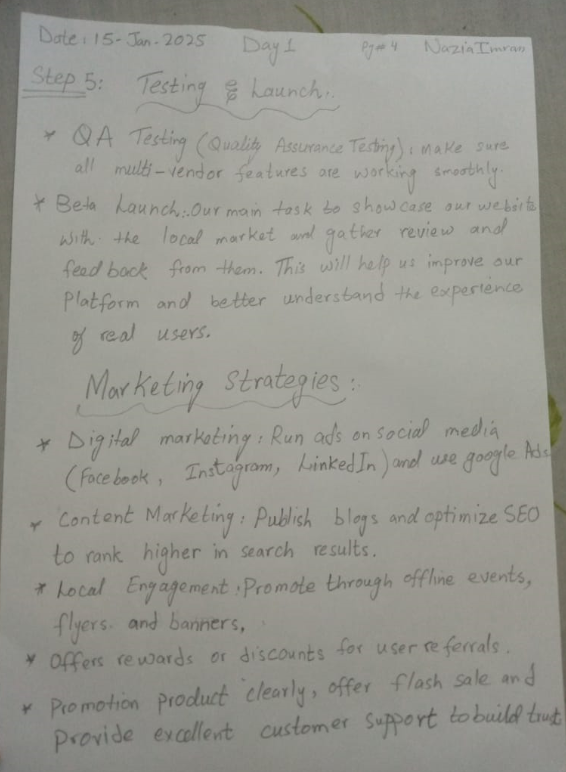 Date: 15-Jan-2025 Day 1 Pg# 4 Nazia Imran
Step 5: Testing & Launch:.
* QA Testing (Quality Assurance Testing): make sure
all multi-vendor features are working smoothly.
* Beta Launch:. Our main task to showcase our website
with the local market and gather review and
feed back from them. This will help us improve our
Platform and better understand the experience
of real users.
Marketing Strategies:.
* Digital marketing: Run ads on social media
(Facebook, Instagram, LinkedIn) and use google Ads
* Content Marketing: Publish blogs and optimize SEO
to rank higher in search results.
* Local Engagement: Promote through offline events,
flyers and banners,
* Offers rewards or discounts for user referrals.
* Promotion product clearly, offer flash sale and
Provide excellent customer support to build trust